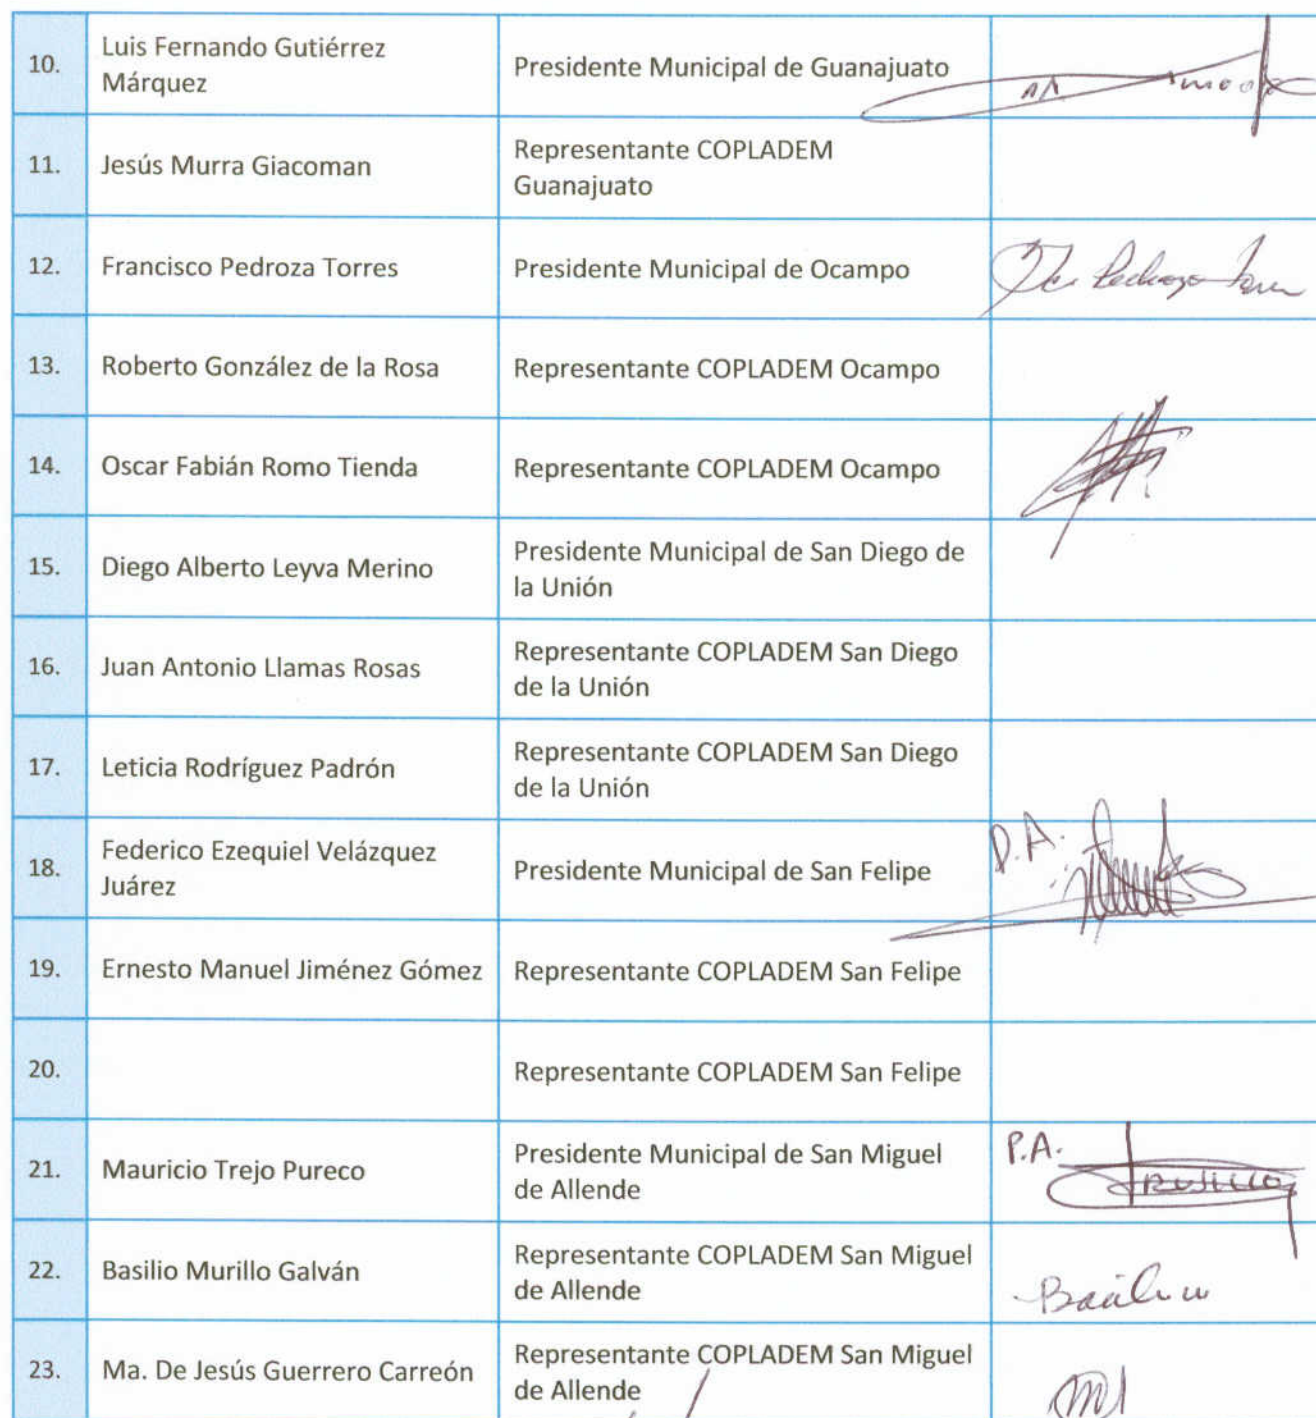 10.
Luis Fernando Gutiérrez
Márquez
Presidente Municipal de Guanajuato
11.
Jesús Murra Giacoman
Representante COPLADEM
Guanajuato
12.
Francisco Pedroza Torres
Presidente Municipal de Ocampo
13.
Roberto González de la Rosa
Representante COPLADEM Ocampo
14.
Oscar Fabián Romo Tienda
Representante COPLADEM Ocampo
15.
Diego Alberto Leyva Merino
Presidente Municipal de San Diego de
la Unión
16.
Juan Antonio Llamas Rosas
Representante COPLADEM San Diego
de la Unión
17.
Leticia Rodríguez Padrón
Representante COPLADEM San Diego
de la Unión
18.
Federico Ezequiel Velázquez
Juárez
Presidente Municipal de San Felipe
19.
Ernesto Manuel Jiménez Gómez
Representante COPLADEM San Felipe
20.
Representante COPLADEM San Felipe
21.
Mauricio Trejo Pureco
Presidente Municipal de San Miguel
de Allende
P.A.
22.
Basilio Murillo Galván
Representante COPLADEM San Miguel
de Allende
23.
Ma. De Jesús Guerrero Carreón
Representante COPLADEM San Miguel
de Allende